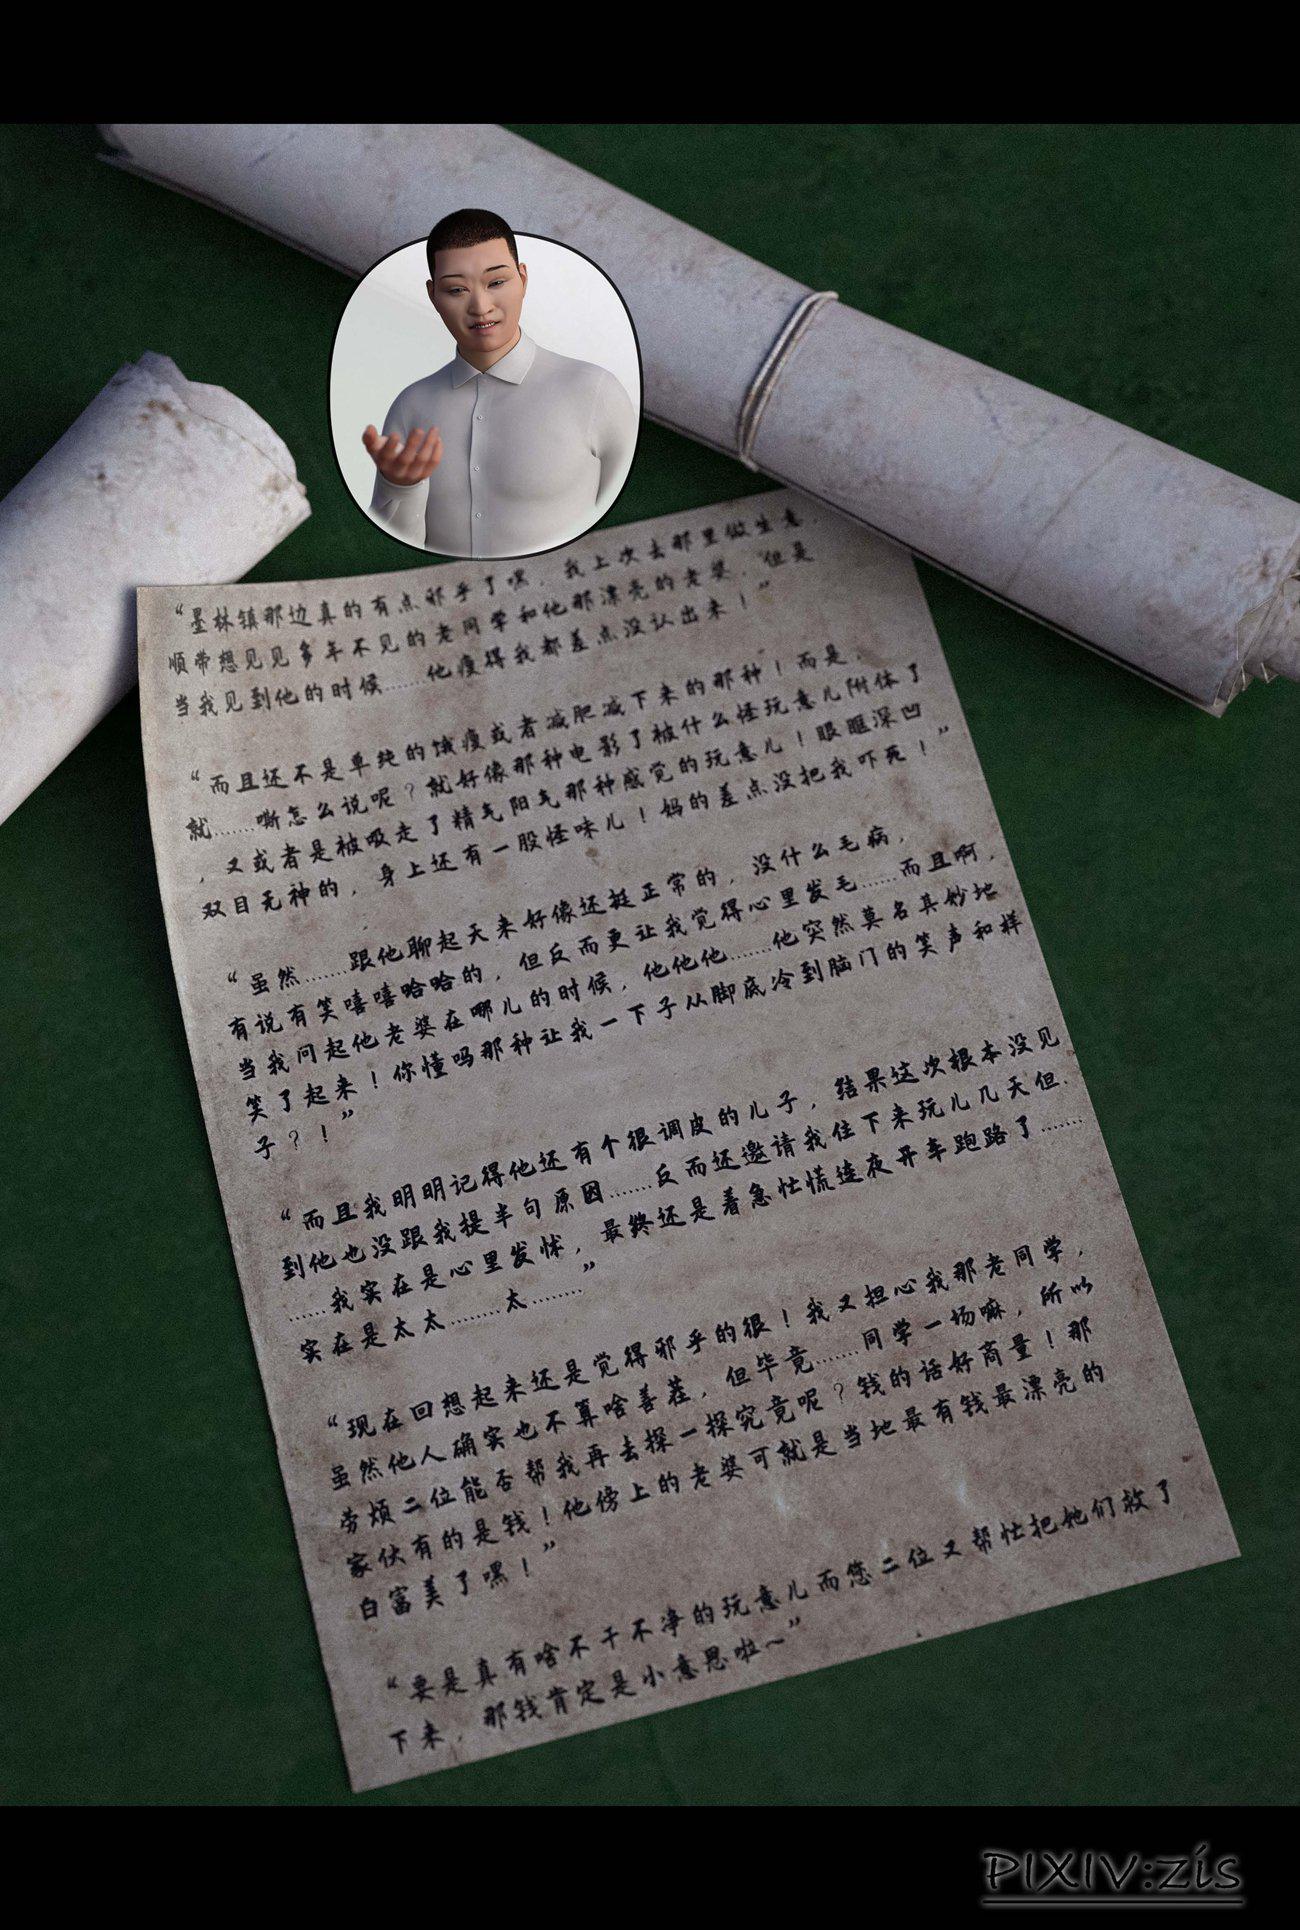 “墨林镇那边真的有点邪乎了嘿，我上次去那里做生意，
顺带想见见多年不见的老同学和他那漂亮的老婆，但是
当我见到他的时候……他瘦得我都差点没认出来！”
“而且还不是单纯的饿瘦或者减肥减下来的那种！而是，
就……嘶怎么说呢？就好像那种电影了被什么怪玩意儿附体了
，又或者是被吸走了精气阳气那种感觉的玩意儿！眼眶深凹
双目无神的，身上还有一股怪味儿！妈的差点没把我吓死！”
“虽然……跟他聊起天来好像还挺正常的，没什么毛病，
有说有笑嘻嘻哈哈的，但反而更让我觉得心里发毛……而且啊，
当我问起他老婆在哪儿的时候，他他他……他突然莫名其妙地
笑了起来！你懂吗那种让我一下子从脚底冷到脑门的笑声和样
子？！”
“而且我明明记得他还有个很调皮的儿子，结果这次根本没见
到他也没跟我提半句原因……反而还邀请我住下来玩儿几天但.
……我实在是心里发怵，最终还是着急忙慌连夜开车跑路了……
实在是太太……太……”
“现在回想起来还是觉得邪乎的很！我又担心我那老同学，
虽然他人确实也不算啥善茬，但毕竟……同学一场嘛，所以
劳烦二位能否帮我再去探一探究竟呢？钱的话好商量！那
家伙有的是钱！他傍上的老婆可就是当地最有钱最漂亮的
白富美了嘿！”
“要是真有啥不干不净的玩意儿而您二位又帮忙把她们救了
下来，那钱肯定是小意思啦～”
PIXIV:zis